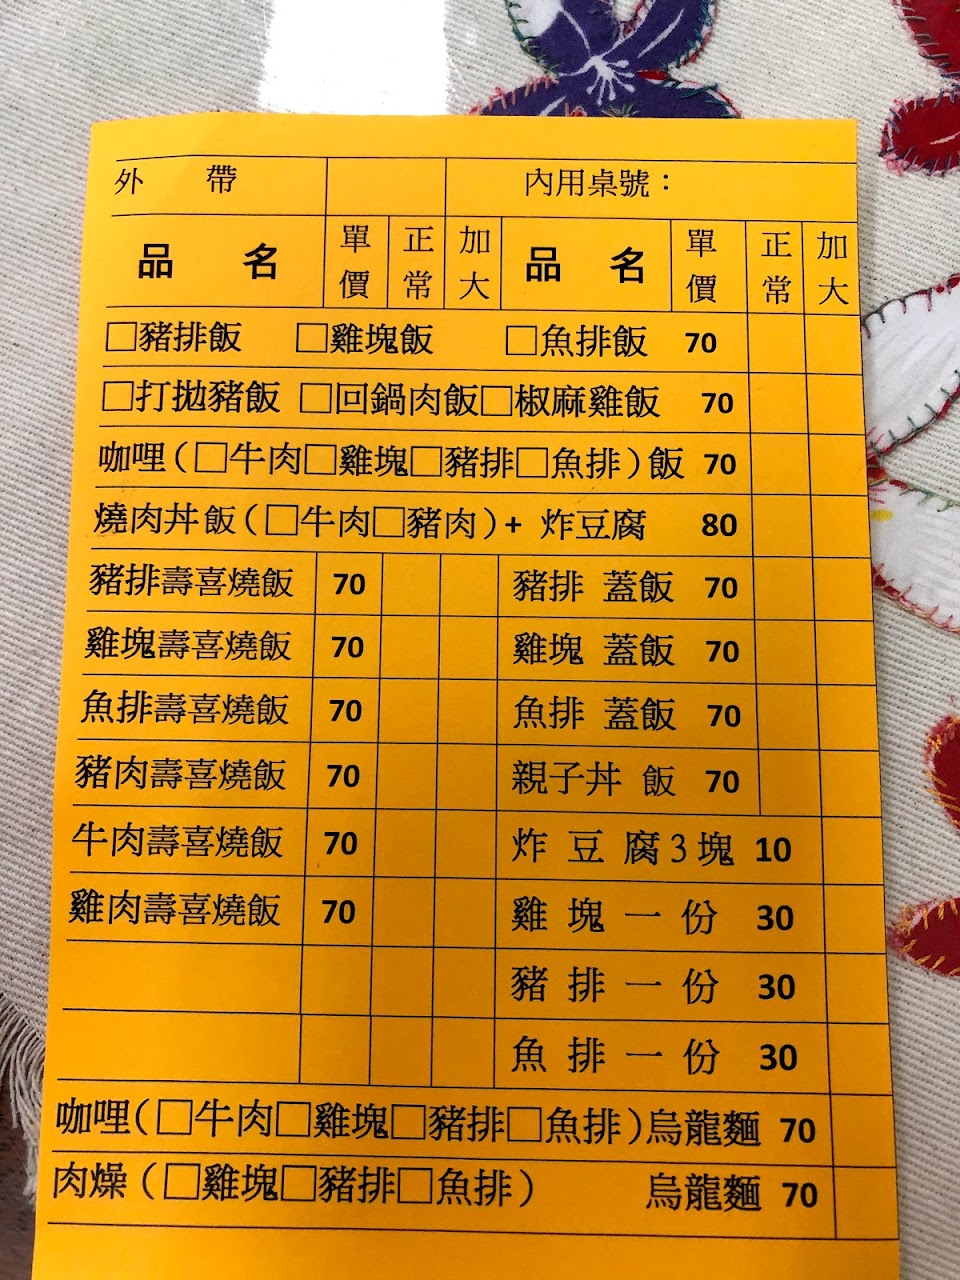 外 帶 內用桌號：
品 名 單價 正常 加大 品 名 單價 正常 加大
□豬排飯 □雞塊飯 □魚排飯 70
□打拋豬飯 □回鍋肉飯□椒麻雞飯 70
咖哩(□牛肉□雞塊□豬排□魚排)飯 70
燒肉丼飯(□牛肉□豬肉)+ 炸豆腐 80
豬排壽喜燒飯 70 豬排 蓋飯 70
雞塊壽喜燒飯 70 雞塊 蓋飯 70
魚排壽喜燒飯 70 魚排 蓋飯 70
豬肉壽喜燒飯 70 親子丼 飯 70
牛肉壽喜燒飯 70 炸 豆 腐 3 塊 10
雞肉壽喜燒飯 70 雞 塊 一 份 30
豬 排 一 份 30
魚 排 一 份 30
咖哩(□牛肉□雞塊□豬排□魚排)烏龍麵 70
肉燥(□雞塊□豬排□魚排) 烏龍麵 70